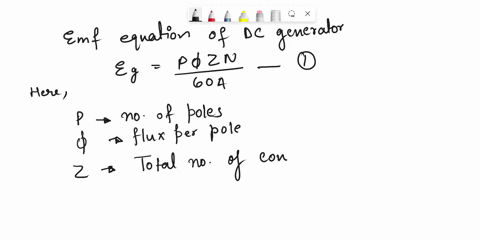 Emf equation of DC generator
Eg = PϕZN / 60A — ①
Here,
P → no. of poles
ϕ → flux per pole
Z → Total no. of con